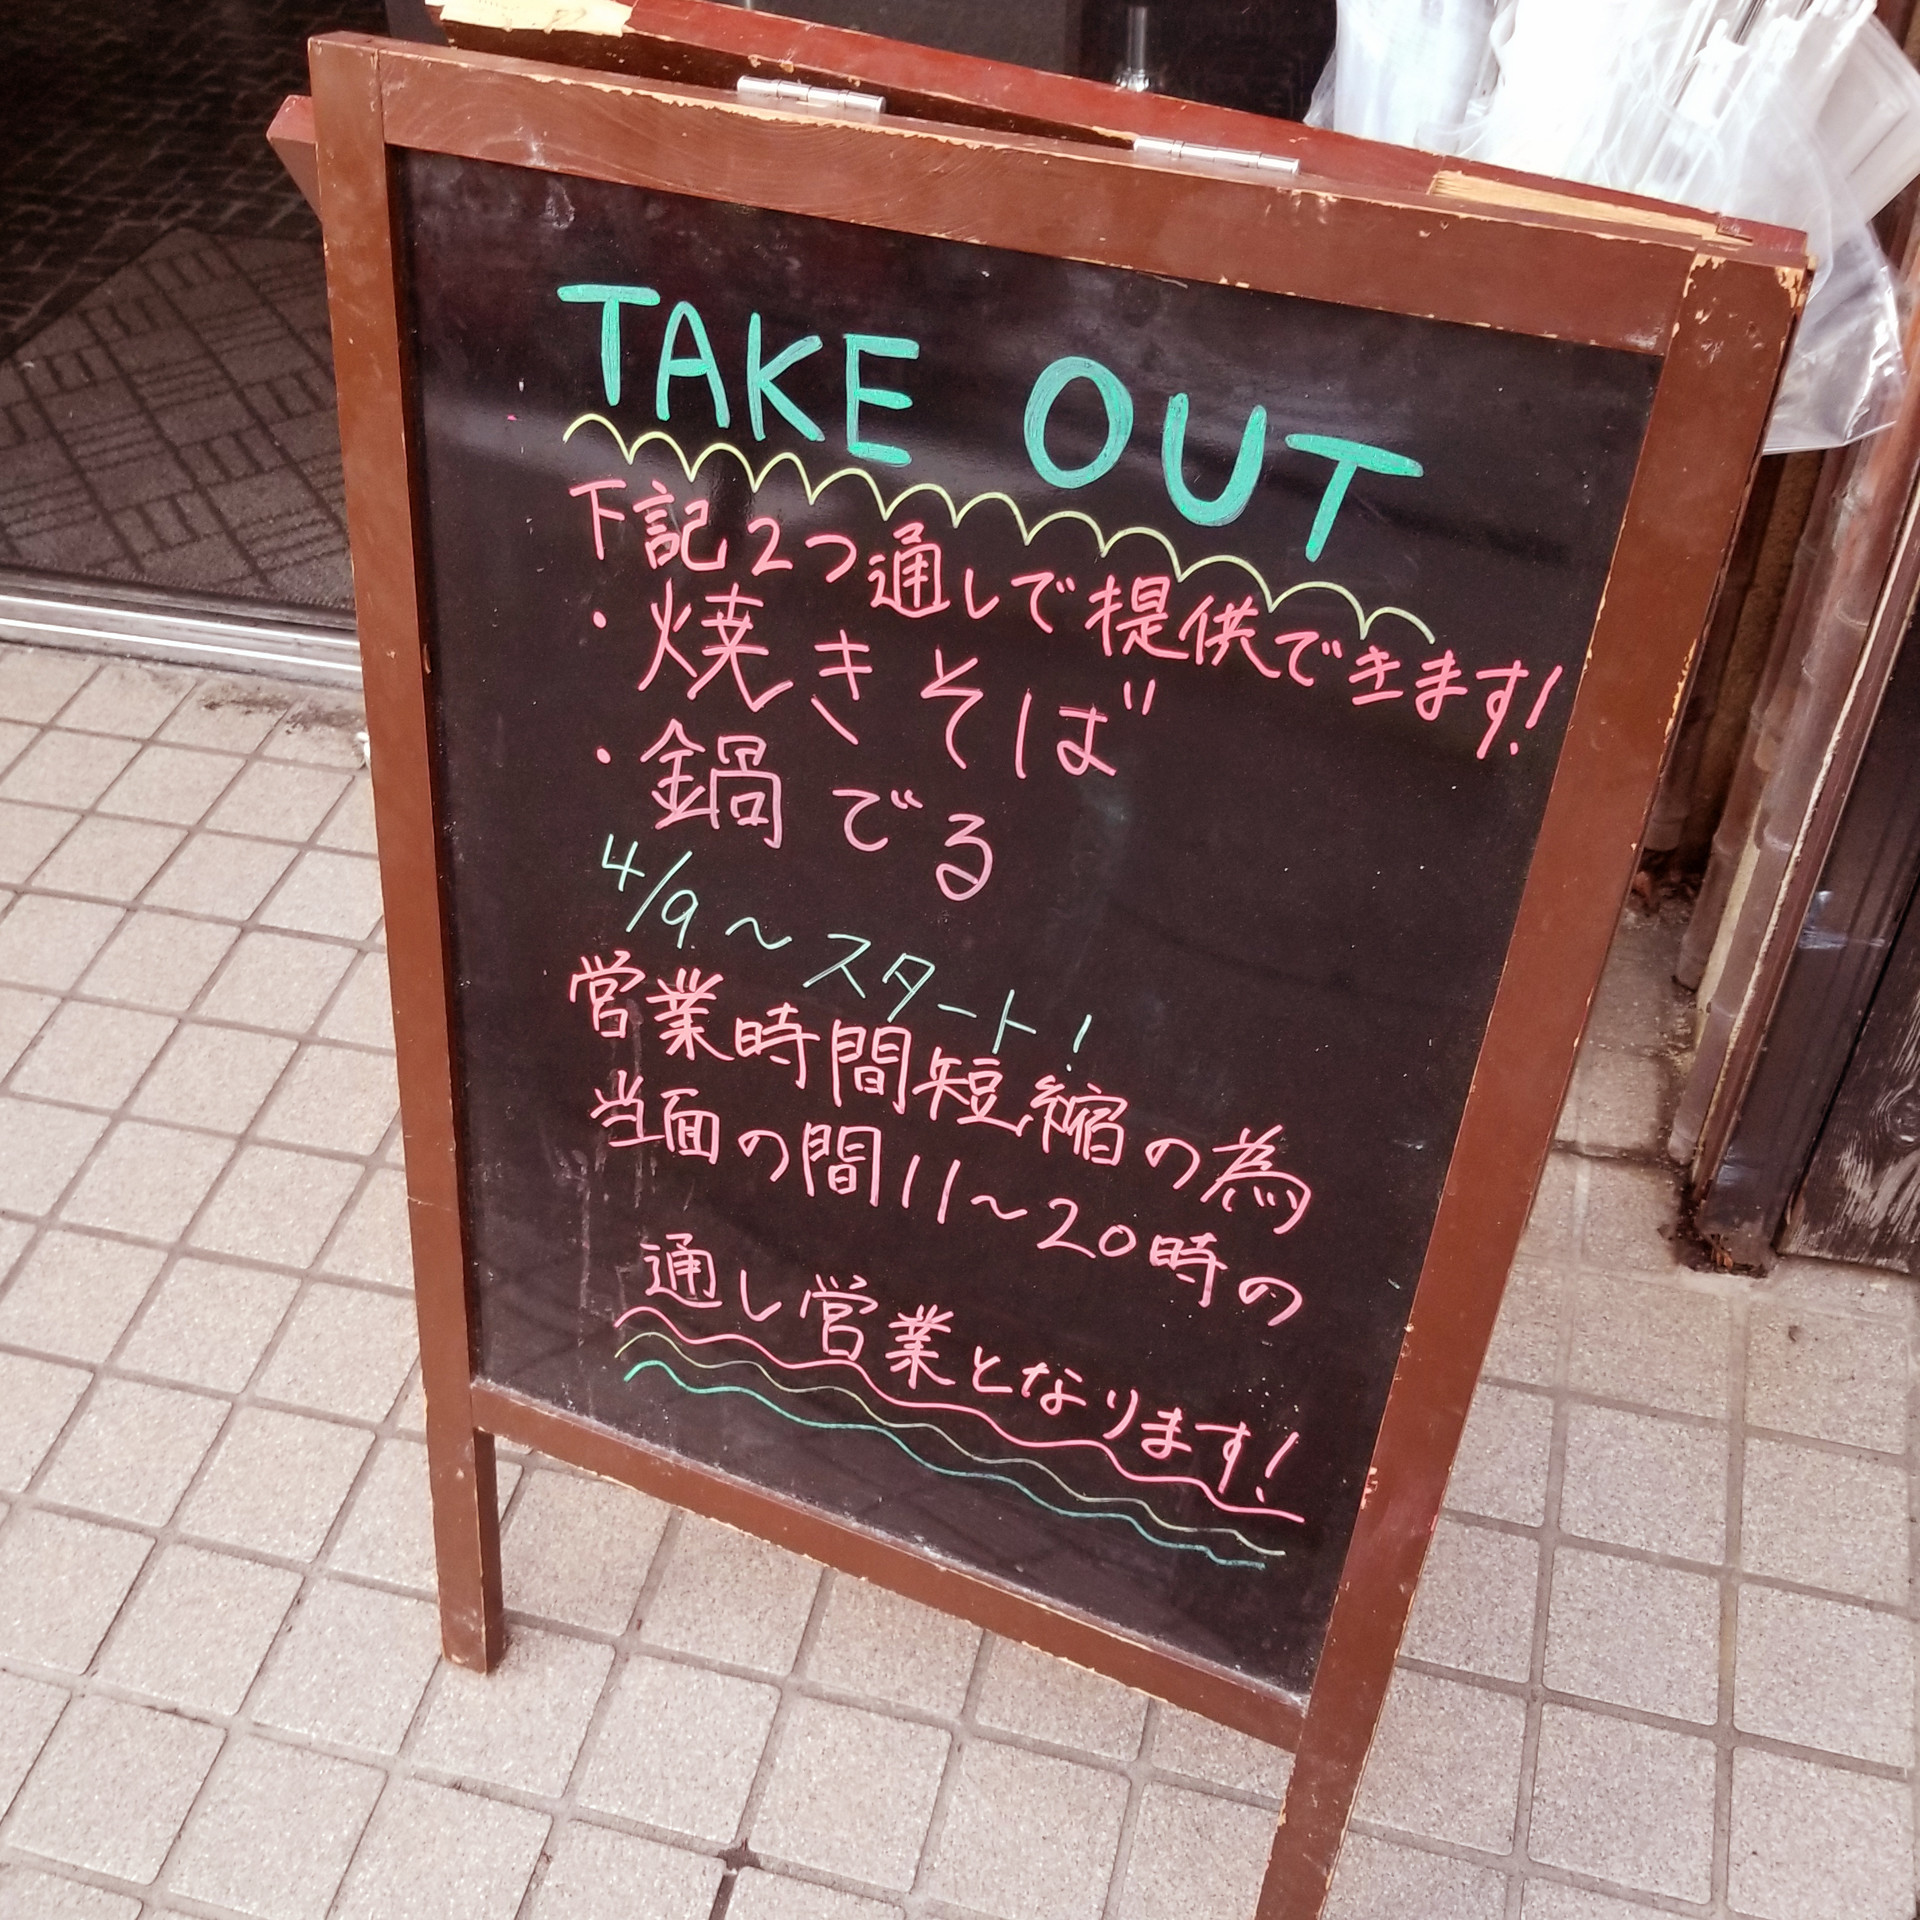 TAKE OUT
下記2つ通しで提供できます!
・焼きそば
・鍋でる
4/9〜スタート!
営業時間短縮の為
当面の間11〜20時の
通し営業となります!